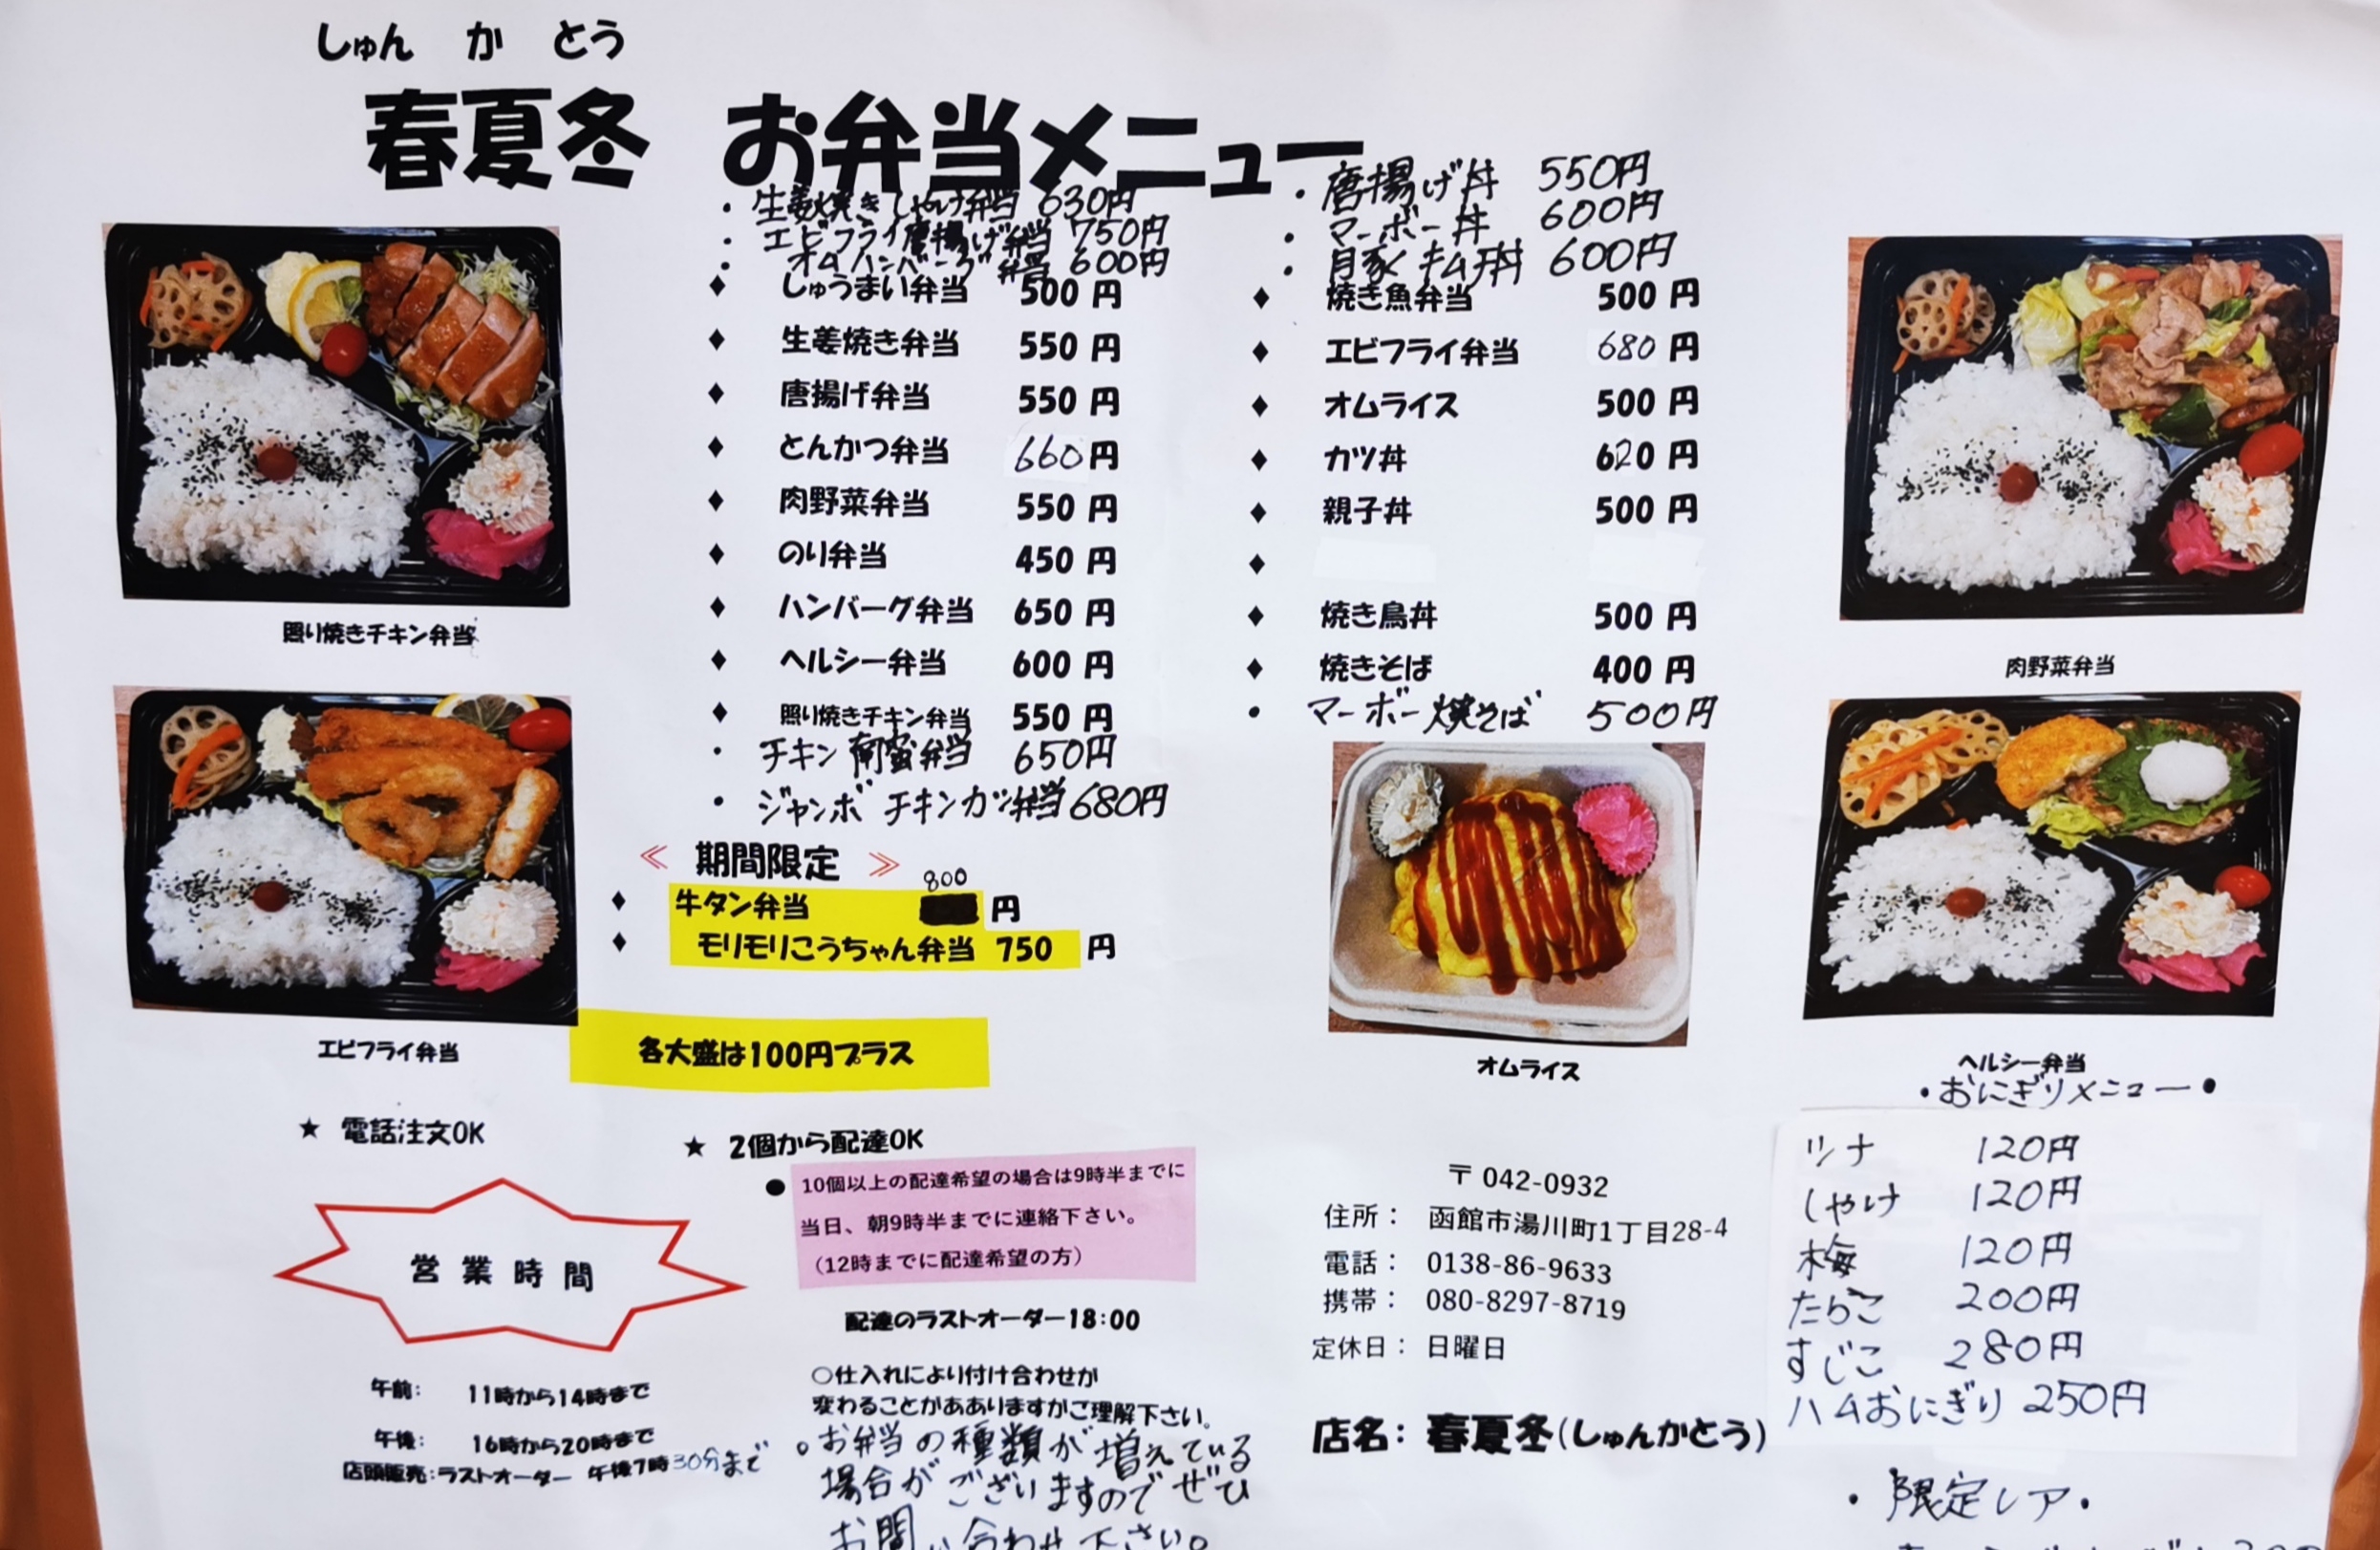 しゅん か とう
春夏冬 お弁当メニュー
・生姜焼きしゃけ弁当 630円
・エビフライ唐揚げ弁当 750円
・オムハンバーグ弁当 600円
♦ しゅうまい弁当 500円
♦ 生姜焼き弁当 550円
♦ 唐揚げ弁当 550円
♦ とんかつ弁当 660円
♦ 肉野菜弁当 550円
♦ のり弁当 450円
♦ ハンバーグ弁当 650円
♦ ヘルシー弁当 600円
♦ 照り焼きチキン弁当 550円
・チキン南蛮弁当 650円
・ジャンボチキンカツ弁当 680円
≪ 期間限定 ≫
♦ 牛タン弁当 800円
♦ モリモリこうちゃん弁当 750円
各大盛は100円プラス
・唐揚げ丼 550円
・マーボー丼 600円
・豚キムチ丼 600円
♦ 焼き魚弁当 500円
♦ エビフライ弁当 680円
♦ オムライス 500円
♦ カツ丼 620円
♦ 親子丼 500円
♦
♦ 焼き鳥丼 500円
♦ 焼きそば 400円
・マーボー焼そば 500円
照り焼きチキン弁当
エビフライ弁当
オムライス
肉野菜弁当
ヘルシー弁当
★ 電話注文OK
★ 2個から配達OK
● 10個以上の配達希望の場合は9時半までに
当日、朝9時半までに連絡下さい。
（12時までに配達希望の方）
配達のラストオーダー18:00
営業時間
午前: 11時から14時まで
午後: 16時から20時まで
店頭販売:ラストオーダー 午後7時30分まで
○仕入れにより付け合わせが
変わることがああありますがご理解下さい。
。お弁当の種類が増えている
場合がございますのでぜひ
お問い合わせ下さい。
〒042-0932
住所： 函館市湯川町1丁目28-4
電話： 0138-86-9633
携帯： 080-8297-8719
定休日： 日曜日
店名: 春夏冬(しゅんかとう)
・おにぎりメニュー・
ツナ 120円
しゃけ 120円
梅 120円
たらこ 200円
すじこ 280円
ハムおにぎり 250円
・限定レア・